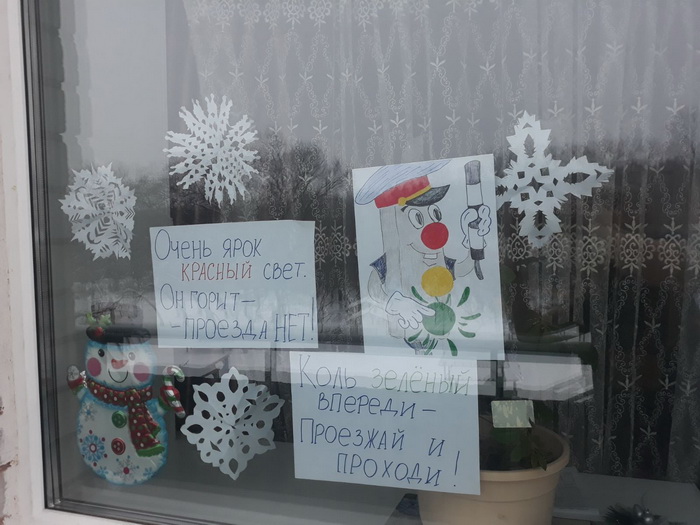 Очень ярок
красный свет.
Он горит–
–проезда нет!
Коль зелёный
впереди–
Проезжай и
проходи!